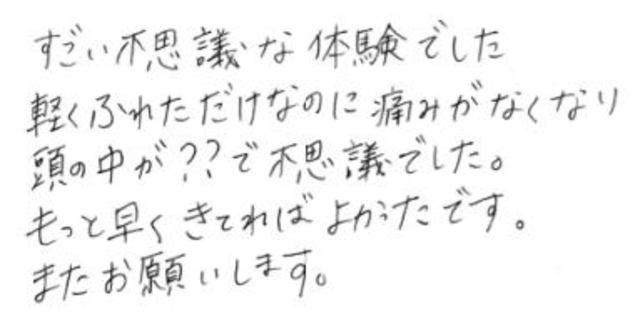 すごい不思議な体験でした
軽くふれただけなのに痛みがなくなり
頭の中が??で不思議でした。
もっと早くきてればよかったです。
またお願いします。